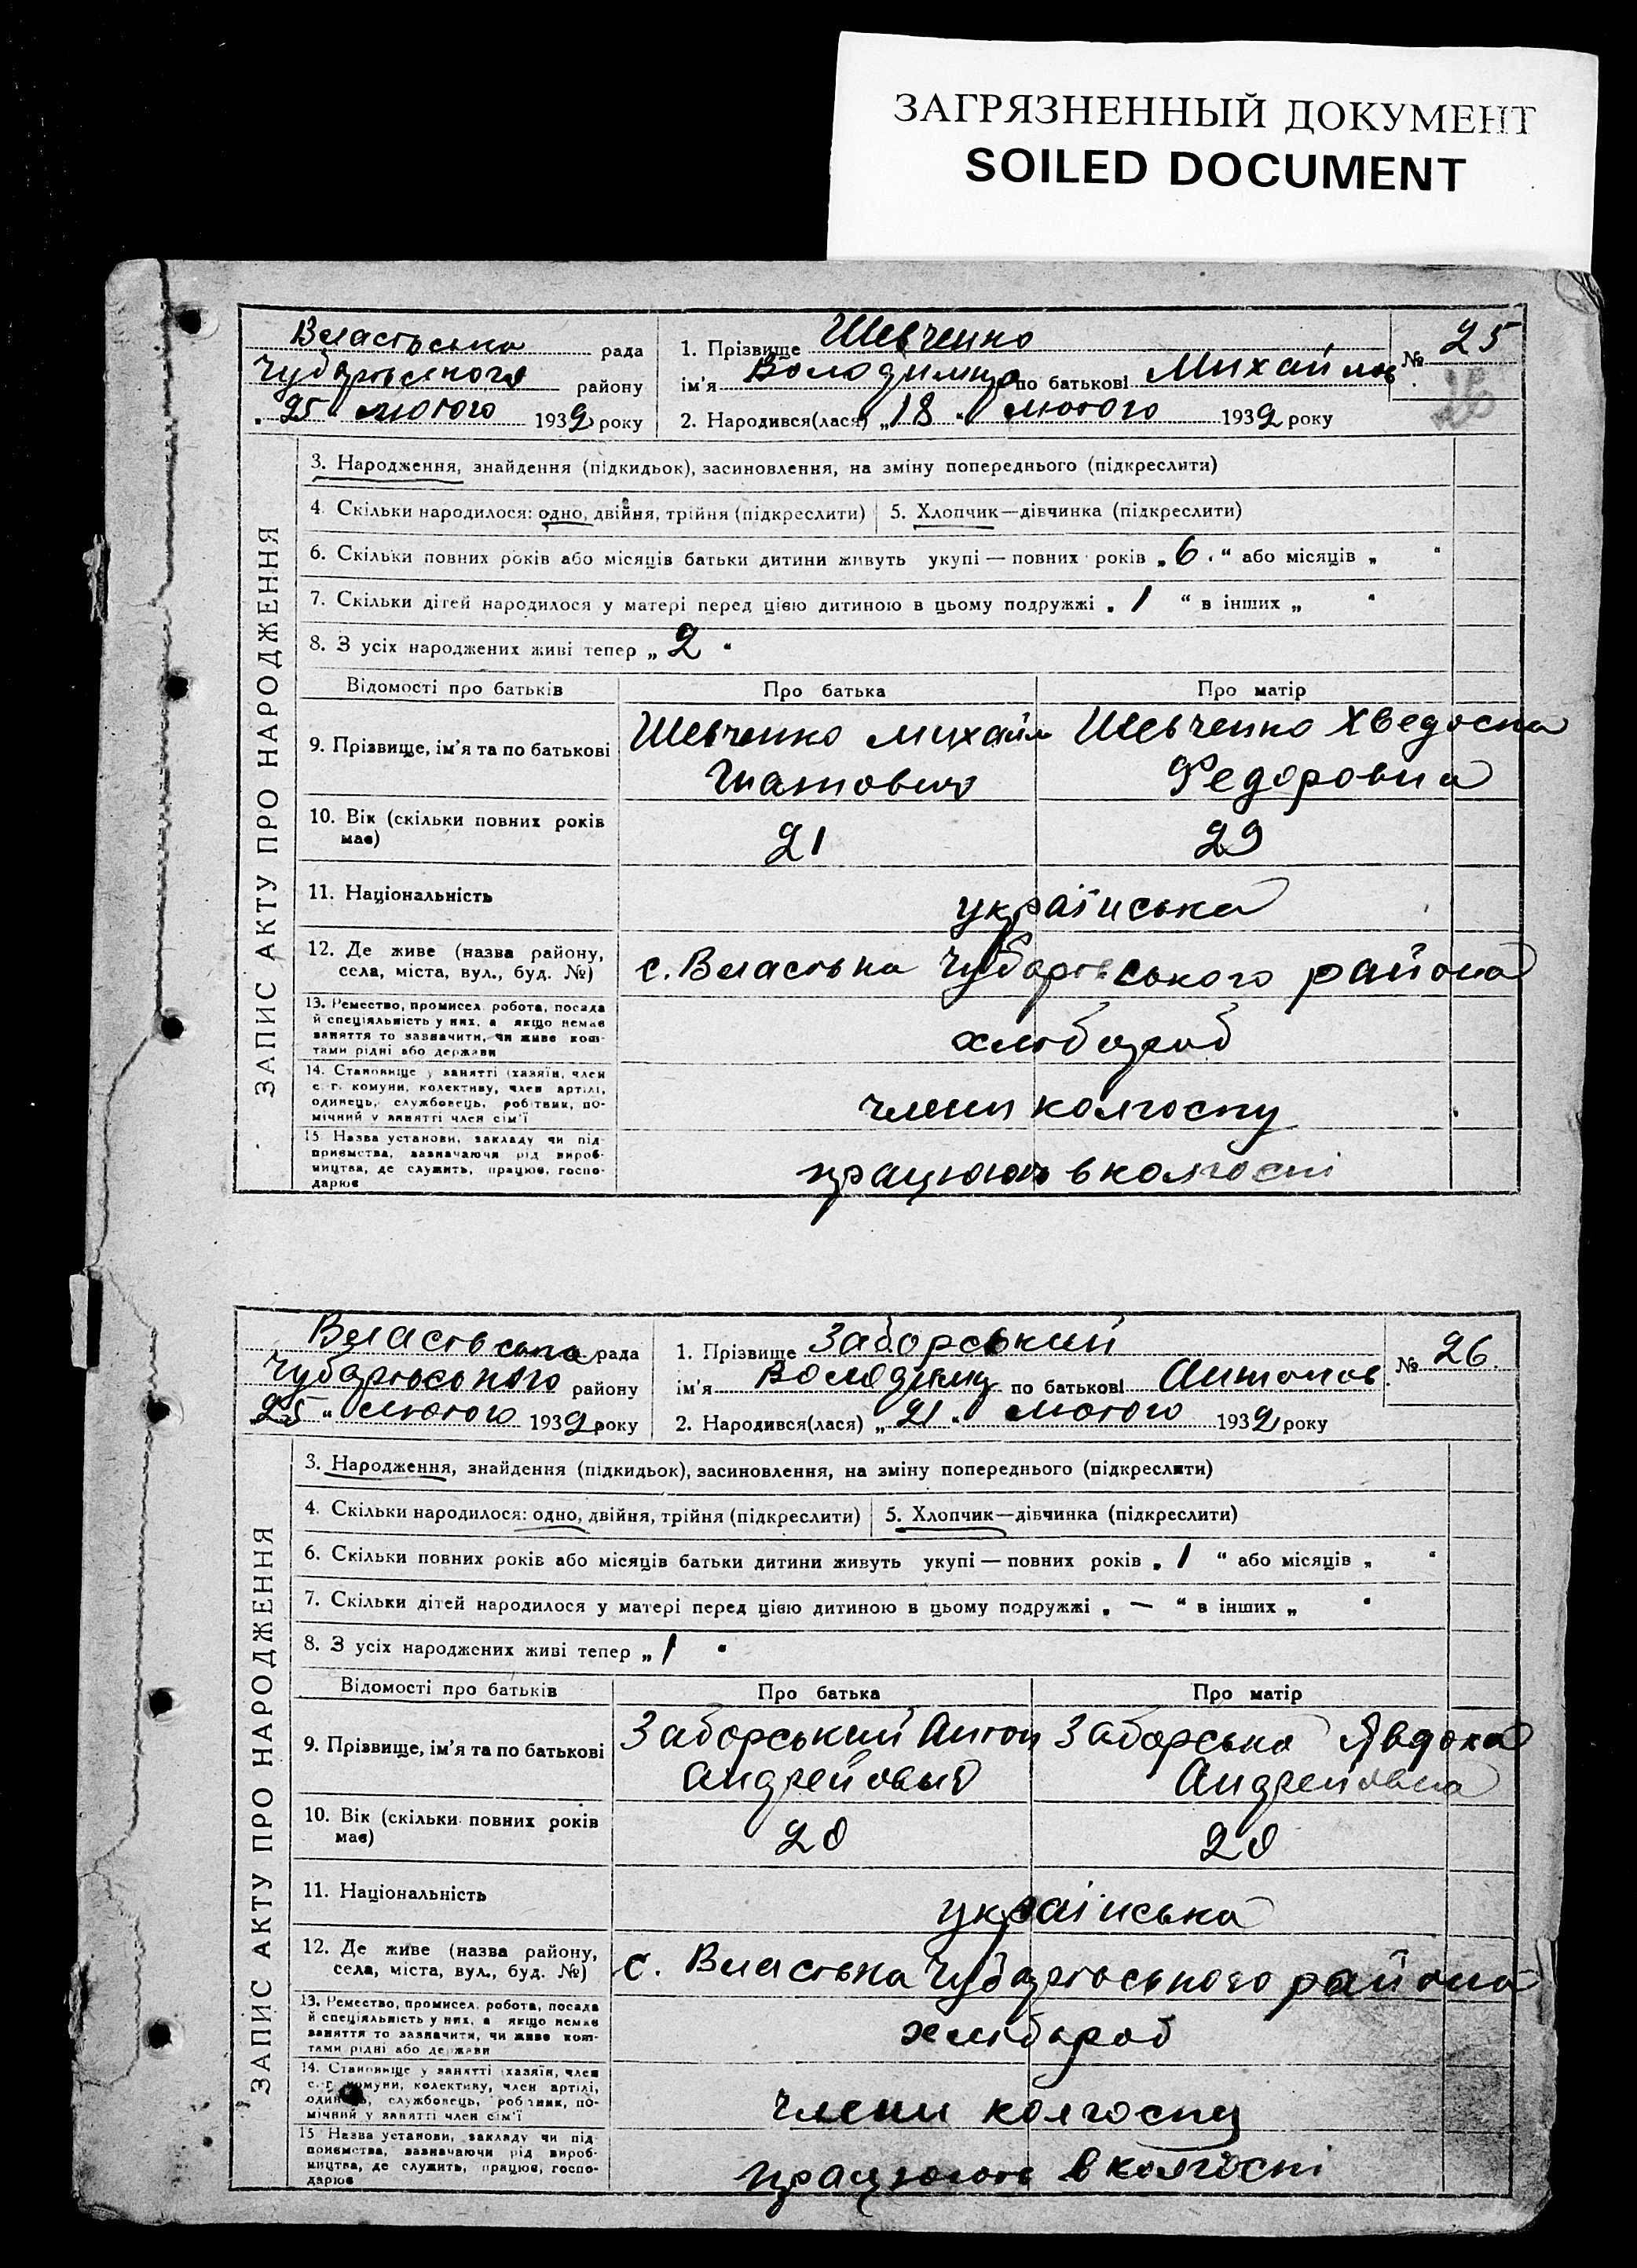 ЗАГРЯЗНЕННЫЙ ДОКУМЕНТ
SOILED DOCUMENT
Власівська рада
Чубарівського району
"25" лютого 1939 року
1. Прізвище Шевченко
ім'я Володимир по батькові Михайлов
2. Народився(лася) "18" лютого 1939 року
№ 25
ЗАПИС АКТУ ПРО НАРОДЖЕННЯ
3. Народження, знайдення (підкидьок), засиновлення, на зміну попереднього (підкреслити)
4. Скільки народилося: одно, двійня, трійня (підкреслити) 5. Хлопчик—дівчинка (підкреслити)
6. Скільки повних років або місяців батьки дитини живуть укупі — повних років „ 6 “ або місяців „ “
7. Скільки дітей народилося у матері перед цією дитиною в цьому подружжі „ 1 “ в інших „ “
8. З усіх народжених живі тепер „ 2 “
Відомості про батьків Про батька Про матір
9. Прізвище, ім'я та по батькові
Шевченко Михайло
Шевченко Хведоска
Федоровна
10. Вік (скільки повних років має) 21 29
11. Національність українська
12. Де живе (назва району,
села, міста, вул., буд. №)
с. Власівка Чубарівського района
13. Ремество, промисел, робота, посада
й спеціяльність у них, а якщо немає
заняття то зазначити, чи живе кош-
тами рідні або держави
хлібороб
14. Становище у занятті (хазяїн, член
с.-г. комуни, колективу, член артілі,
одинець, службовець, робітник, по-
мічний у занятті член сім'ї
члени колгоспу
15. Назва установи, закладу чи під-
приємства, зазначаючи рід вироб-
ництва, де служить, працює, госпо-
дарює
працюють в колгоспі
Власівська рада
Чубарівського району
"25" лютого 1939 року
1. Прізвище Заборський
ім'я Володимир по батькові Антонов
2. Народився(лася) „ 21 “ лютого 1939 року
№ 26.
ЗАПИС АКТУ ПРО НАРОДЖЕННЯ
3. Народження, знайдення (підкидьок), засиновлення, на зміну попереднього (підкреслити)
4. Скільки народилося: одно, двійня, трійня (підкреслити) 5. Хлопчик—дівчинка (підкреслити)
6. Скільки повних років або місяців батьки дитини живуть укупі — повних років „ 1 “ або місяців „ “
7. Скільки дітей народилося у матері перед цією дитиною в цьому подружжі „ — “ в інших „ “
8. З усіх народжених живі тепер „ 1 “
Відомості про батьків Про батька Про матір
9. Прізвище, ім'я та по батькові
Заборський Антон
Андрейович
Заборська Явдоха
Андрейовна
10. Вік (скільки повних років має) 20 20
11. Національність українська
12. Де живе (назва району,
села, міста, вул., буд. №)
с. Власівка Чубарівського района
13. Ремество, промисел, робота, посада
й спеціяльність у них, а якщо немає
заняття то зазначити, чи живе кош-
тами рідні або держави
хлібороб
14. Становище у занятті (хазяїн, член
с.-г. комуни, колективу, член артілі,
одинець, службовець, робітник, по-
мічний у занятті член сім'ї
члени колгоспу
15. Назва установи, закладу чи під-
приємства, зазначаючи рід вироб-
ництва, де служить, працює, госпо-
дарює
працюють в колгоспі